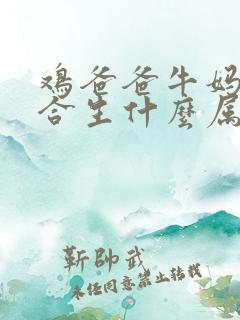 鸡爸爸牛妈
合生什麽属
靳帥武
未经同意禁止转载